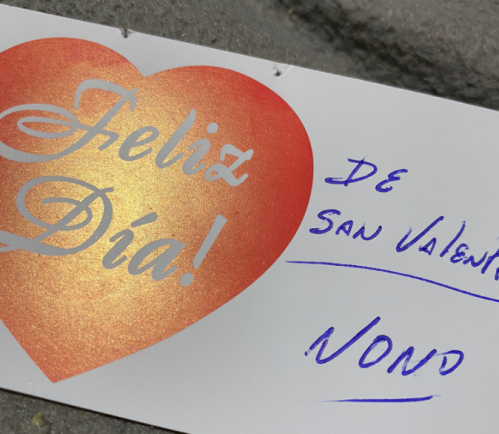 Feliz
Día!
DE
SAN VALENTI
NONO